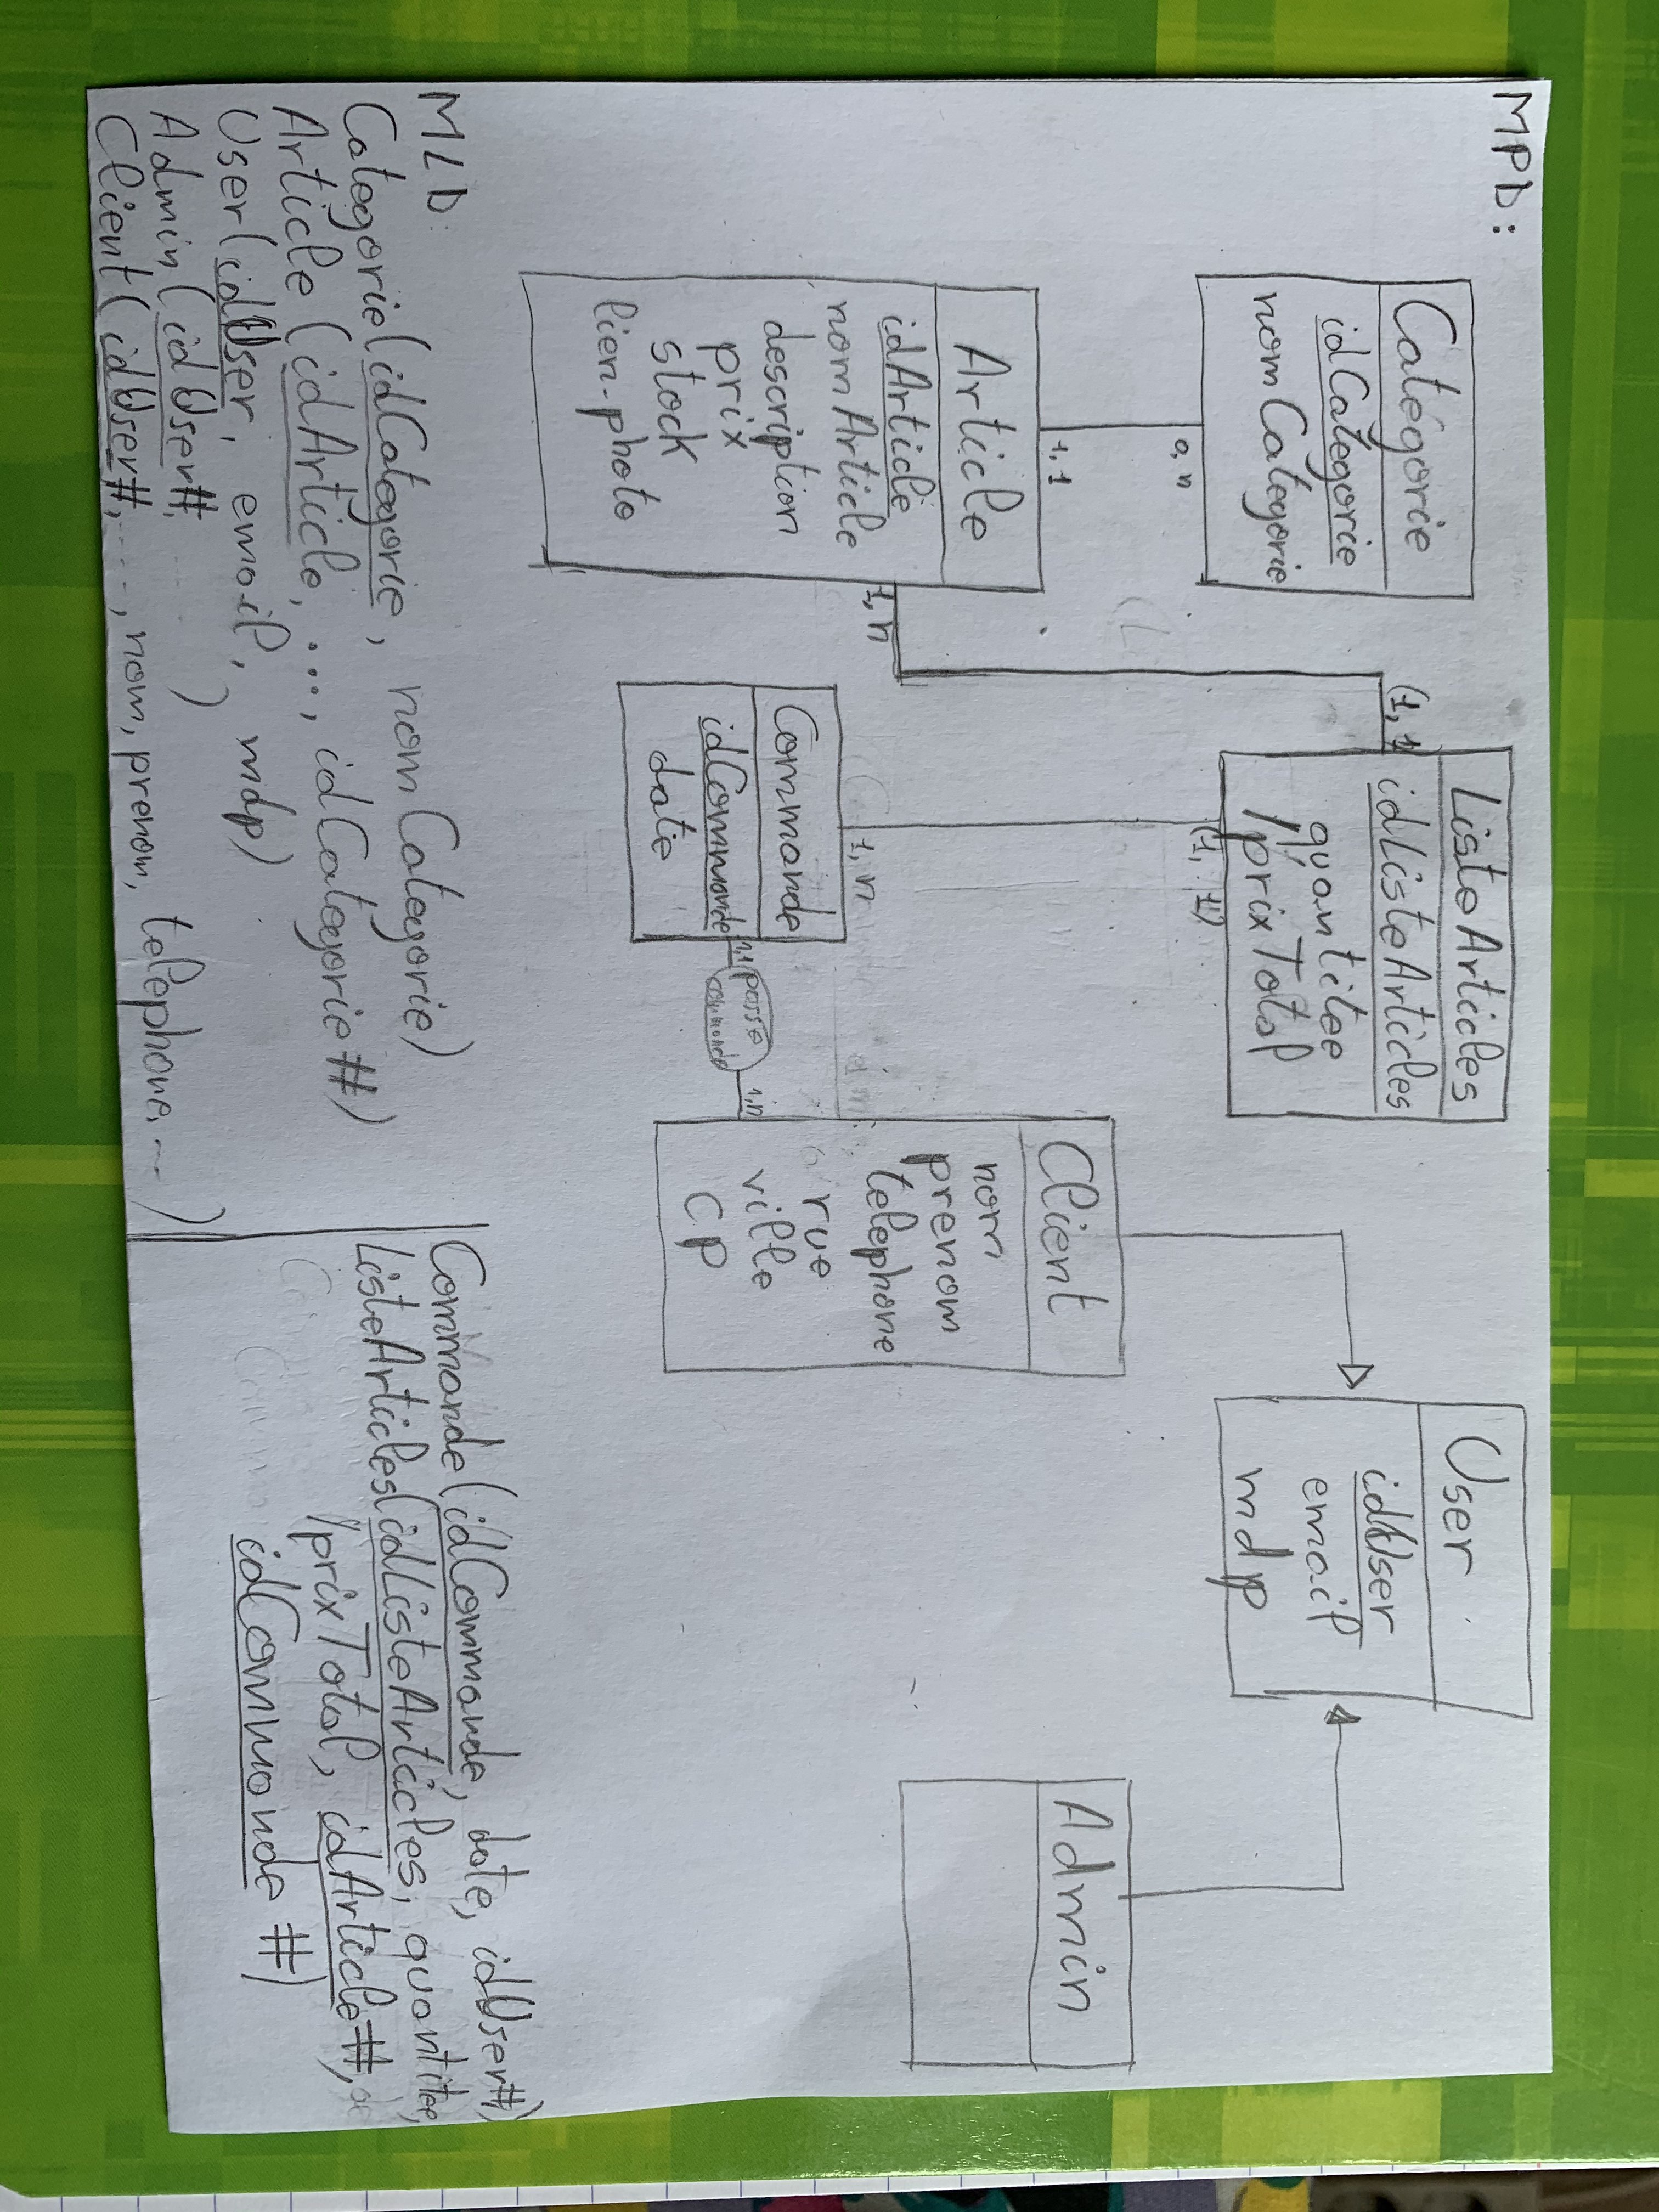 MPD:
Catégorie
idCategorie
nomCategorie
0, n
1, 1
Article
idArticle
nomArticle
description
prix
stock
lien-photo
1, n
(1, 1
ListeArticles
idListeArticles
quantitee
/prixTotal
(1, 1)
1, n
Commande
idCommande
date
1,1
passe
commande
1,n
Client
nom
prenom
telephone
rue
ville
CP
User
idUser
email
mdp
Admin
MLD:
Categorie(idCategorie, nomCategorie)
Article (idArticle, ..., idCategorie#)
User(idUser, email, mdp)
Admin(idUser#, )
Client(idUser#, ...., nom, prenom, telephone, ...)
Commande(idCommande, date, idUser#)
ListeArticles(idListeArticles, quantitee,
/prixTotal, idArticle#,
idCommande #)